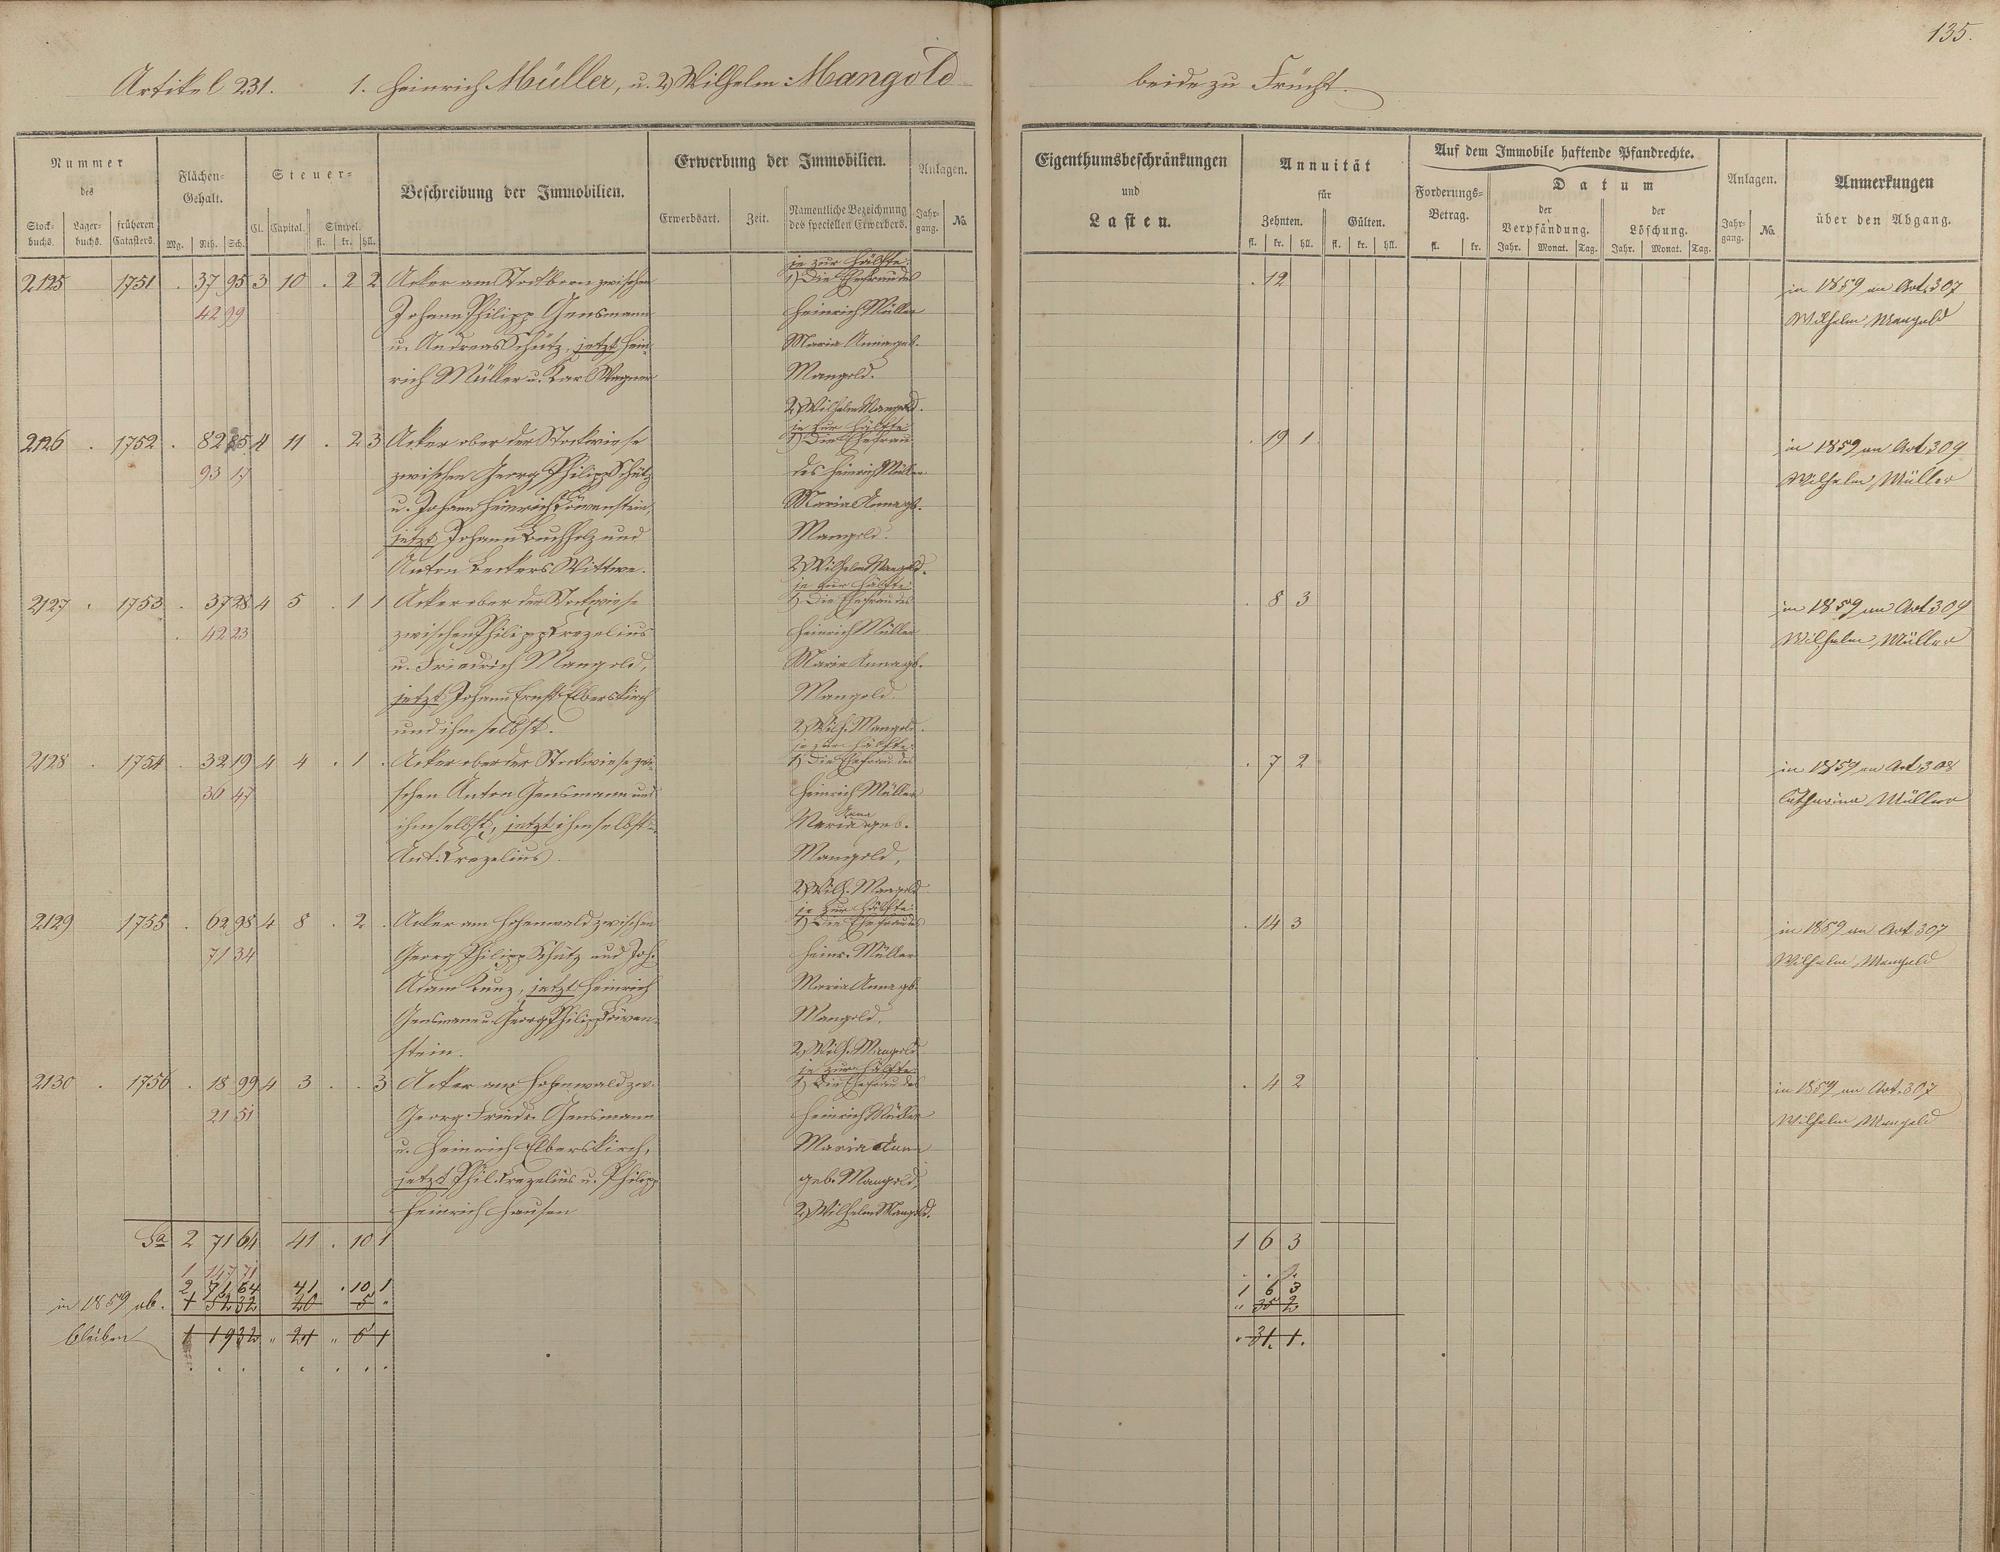 135.
Artikel 231. 1. Heinrich Müller, u. 2) Wilhelm Mangold beide zu Frücht.
Nummer des
Stockbuchs. Lagerbuchs. früheren Catasters.
Flächen-Gehalt.
Mg. Rth. Sch.
Steuer-
Cl. Capital. Simpel. fl. kr. hll.
Beschreibung der Immobilien.
Erwerbung der Immobilien.
Erwerbsart. Zeit. Namentliche Bezeichnung des speciellen Erwerbers.
Anlagen.
Jahrgang. No.
Eigenthumsbeschränkungen
und
Lasten.
Annuität
für
Zehnten. Gülten.
fl. kr. hll. fl. kr. hll.
Auf dem Immobile haftende Pfandrechte.
Forderungs-Betrag. fl. kr.
Datum
der Verpfändung. der Löschung.
Jahr. Monat. Tag. Jahr. Monat. Tag.
Anlagen.
Jahrgang. No.
Anmerkungen
über den Abgang.
je zur Hälfte:
2125 1751 . 37 95 3 10 . 2 2 Acker am Stockborn zwischen 1) Die Ehefrau des . 12 in 1859 an Art. 307
42 99 Johann Philipp Gensmann Heinrich Müller Wilhelm Mangold
u. Andreas Schütz, jetzt Hein- Maria Anna geb.
rich Müller u. Karl Wagner Mangold.
2) Wilhelm Mangold.
je zur Hälfte:
2126 . 1752 . 82 25 4 11 . 2 3 Acker ober der Stockwiese 1) Die Ehefrau . 19 1 in 1859 an Art 309
93 17 zwischen Georg Philipp Schütz des Heinrich Müller Wilhelm Müller
u. Johann Heinrich Löwenstein, Maria Anna gb.
jetzt Johann Buchholz und Mangold.
Anton Beckers Wittwe. 2) Wilhelm Mangold.
je zur Hälfte:
2127 . 1753 . 37 28 4 5 . 1 1 Acker ober der Stockwiese 1) Die Ehefrau des . 8 3 in 1859 an Art 309
. 42 23 zwischen Philipp Crezelius Heinrich Müller Wilhelm Müller
u. Friedrich Mangold, Maria Anna gb.
jetzt Johann Ernst Elberskirch Mangold.
und ihm selbst. 2) Wilh. Mangold.
je zur Hälfte:
2128 . 1754 . 32 19 4 4 . 1 . Acker ober der Stockwiese zwi- 1) Die Ehefrau des . 7 2 in 1859 an Art. 308
36 47 schen Anton Gensmann und Heinrich Müller Catharina Müller
ihm selbst, jetzt ihm selbst u. Maria Anna geb.
Ant. Crezelius. Mangold,
2) Wilh. Mangold
je zur Hälfte:
2129 1755 . 62 98 4 8 . 2 . Acker am Hohenwald zwischen 1) Die Ehefrau des . 14 3 in 1859 an Art 307
71 34 Georg Philipp Schütz und Joh. Heinr. Müller Wilhelm Mangold
Adam Kunz, jetzt Heinrich Maria Anna gb.
Gensmann u. Georg Philipp Löwen- Mangold.
stein. 2) Wilh. Mangold
je zur Hälfte:
2130 . 1756 . 18 99 4 3 . . 3 Acker am Hohenwald zw. 1) Die Ehefrau des . 4 2 in 1859 an Art. 307
21 51 Georg Friedr. Gensmann Heinrich Müller Wilhelm Mangold
u. Heinrich Elberskirch, Maria Anna
jetzt Phil. Crezelius u. Philipp geb. Mangold,
Heinrich Hausen 2) Wilhelm Mangold.
Sa 2 71 64 41 . 10 1 1 6 3
1 147 71
2 71 64 41 . 10 1 1 6 3
in 1859 ab. 1 52 32 20 5 " " 35 2
bleiben 1 19 32 " 21 " 5 1 . 31. 1.